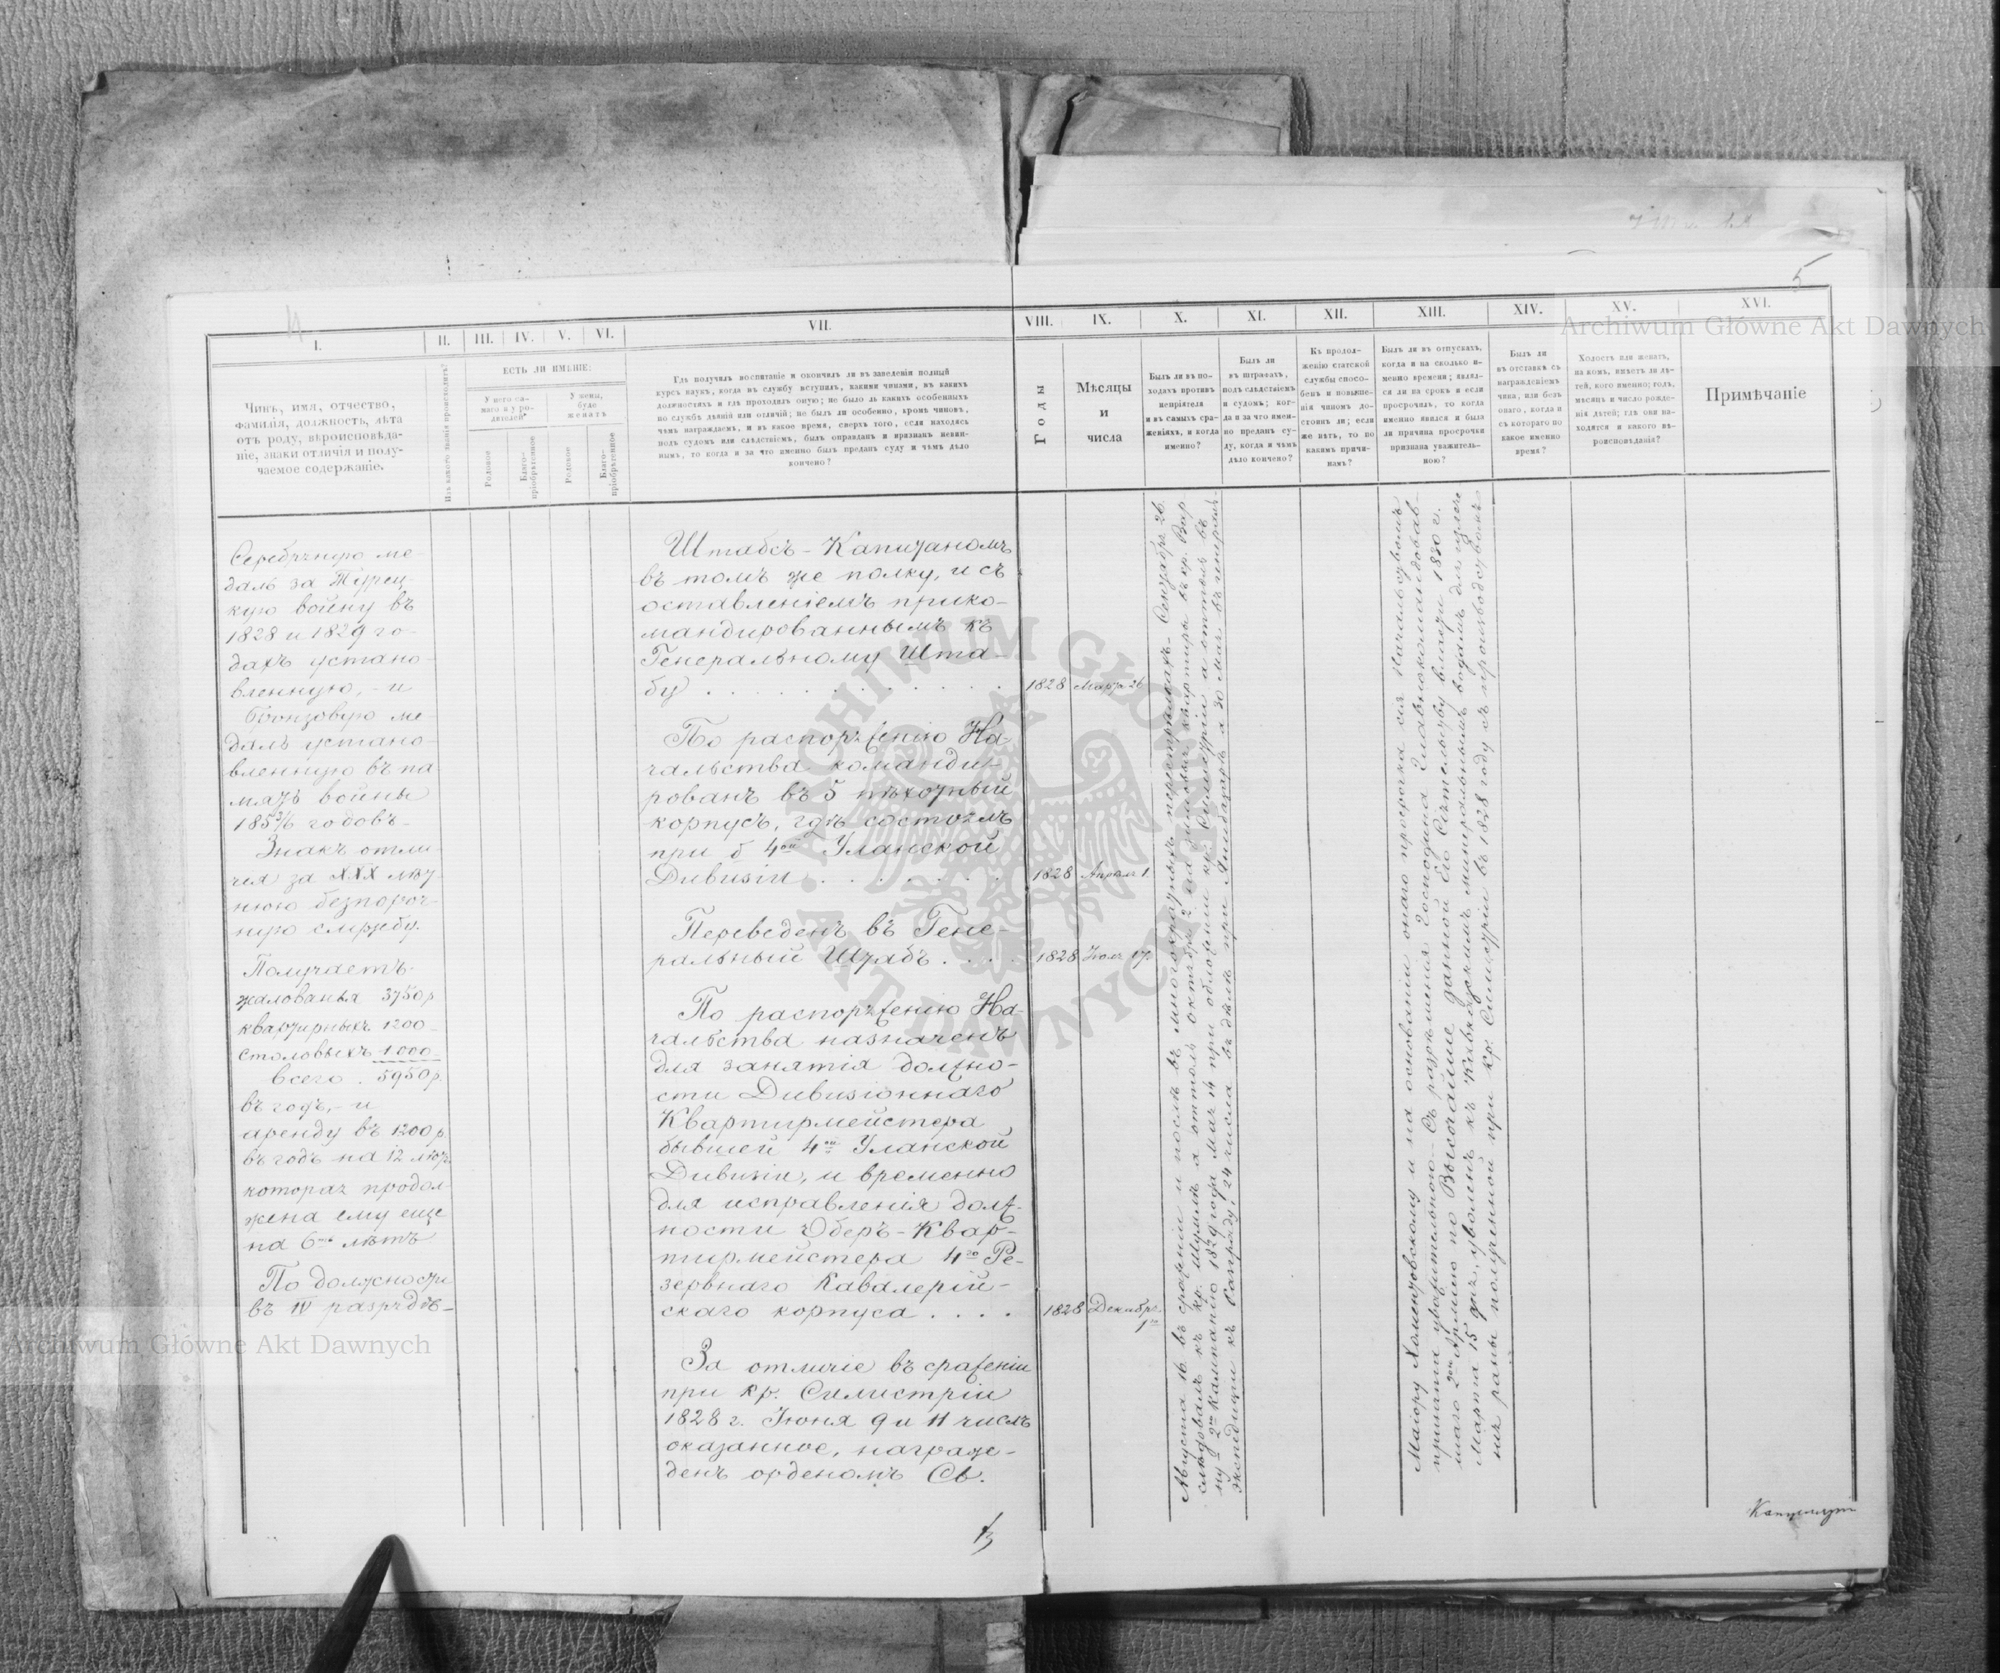 4
5
Archiwum Główne Akt Dawnych
I.
II.
III.
IV.
V.
VI.
VII.
VIII.
IX.
X.
XI.
XII.
XIII.
XIV.
XV.
XVI.
Чинъ, имя, отчество,
фамилія, должность, лѣта
отъ роду, вѣроисповѣда-
ніе, знаки отличія и полу-
чаемое содержаніе.
Изъ какого званія происходитъ?
ЕСТЬ ЛИ ИМѢНІЕ:
У него са-
маго и у ро-
дителей
У жены,
буде
женатъ
Родовое
Благо-
пріобрѣтенное
Родовое
Благо-
пріобрѣтенное
Гдѣ получилъ воспитаніе и окончилъ ли въ заведеніи полный
курсъ наукъ, когда въ службу вступилъ, какими чинами, въ какихъ
должностяхъ и гдѣ проходилъ оную; не было ль какихъ особенныхъ
по службѣ дѣяній или отличій; не былъ ли особенно, кромѣ чиновъ,
чѣмъ награждаемъ, и въ какое время, сверхъ того, если находясь
подъ судомъ или слѣдствіемъ, былъ оправданъ и признанъ невин-
нымъ, то когда и за что именно былъ преданъ суду и чѣмъ дѣло
кончено?
Годы
Мѣсяцы
и
числа
Былъ ли въ по-
ходахъ противъ
непріятеля
и въ самыхъ сра-
женіяхъ, и когда
именно?
Былъ ли
въ штрафахъ,
подъ слѣдствіемъ
и судомъ; ког-
да и за что имен-
но преданъ су-
ду, когда и чѣмъ
дѣло кончено?
Къ продол-
женію статской
службы спосо-
бенъ и повыше-
нія чиномъ до-
стоинъ ли; если
же нѣтъ, то по
какимъ причи-
намъ?
Былъ ли въ отпускахъ,
когда и на сколько и-
менно времени; являл-
ся ли на срокъ и если
просрочилъ, то когда
именно явился и была
ли причина просрочки
признана уважитель-
ною?
Былъ ли
въ отставкѣ съ
награжденіемъ
чина, или безъ
онаго, когда и
съ котораго по
какое именно
время?
Холостъ или женатъ,
на комъ, имѣетъ ли дѣ-
тей, кого именно; годъ,
мѣсяцъ и число рожде-
нія дѣтей; гдѣ они на-
ходятся и какого вѣ-
роисповѣданія?
Примѣчаніе
Серебряную ме-
даль за Турец-
кую войну въ
1828 и 1829 го-
дахъ устано-
вленную, - и
Бронзовую ме-
даль устано-
вленную въ па-
мять войны
185 3/6 годовъ-
Знакъ отли-
чія за XXX лѣт-
нюю безпороч-
ную службу.
Получаетъ:
жалованья 3750 р
квартирныхъ 1200 -
столовыхъ 1000 -
всего . 5950 р.
въ годъ, - и
аренду въ 1200 р.
въ годъ на 12 лѣтъ
которая продол-
жена ему еще
на 6ть лѣтъ
По должности
въ IV разрядѣ -
Штабсъ-Капитаномъ
въ томъ же полку, и съ
оставленіемъ прико-
мандированнымъ къ
Генеральному Шта-
бу . . . . . . . . . 1828 Марта 26
По распоряженію На-
чальства команди-
рованъ въ 5 пѣхотный
корпусъ, гдѣ состоялъ
при б 4ой Уланской
Дивизіи . . . . . . . 1828 Апрѣля 1.
Переведенъ въ Гене-
ральный Штабъ . . . . 1828 Іюля 17
По распоряженію На-
чальства назначенъ
для занятія должно-
сти Дивизіоннаго
Квартирмейстера
бывшей 4ой Уланской
Дивизіи, и временно
для исправленія долж-
ности Оберъ-Квар-
тирмейстера 4го Ре-
зервнаго Кавалерій-
скаго корпуса . . . . 1828 Декабря.
1го
За отличіе въ сраженіи
при кр. Силистріи
1828 г. Іюня 9 и 11 числъ
оказанное, награж-
денъ орденомъ Св.
Августа 16. въ сраженіи и послѣ въ многократныхъ перестрѣлкахъ. Сентября 26.
слѣдовалъ къ кр. Шумлѣ а оттоль октября 2 на зимовыя квартиры въ кр. Вар
ну 2ю Кампанію 1829 года Мая 4 при обложеніи кр. Силистріи а оттоль въ
экспедиціи къ Разграду, 24 числа въ дѣлѣ при
Маіору Хоментовскому и на основаніи онаго просрочка сія Начальствомъ
принята уважительною. - Съ разрѣшенія Господина Главнокомандовав-
шаго 2ою Арміею по Высочайше данной Его Сіятельству власти 1830 г.
Марта 15 дня, уволенъ къ Кавказскимъ минеральнымъ водамъ для излече
нія раны полученной при кр. Силистріи въ 1828 году съ производствомъ
ARCHIWUM GŁÓWNE AKT DAWNYCH
Archiwum Główne Akt Dawnych